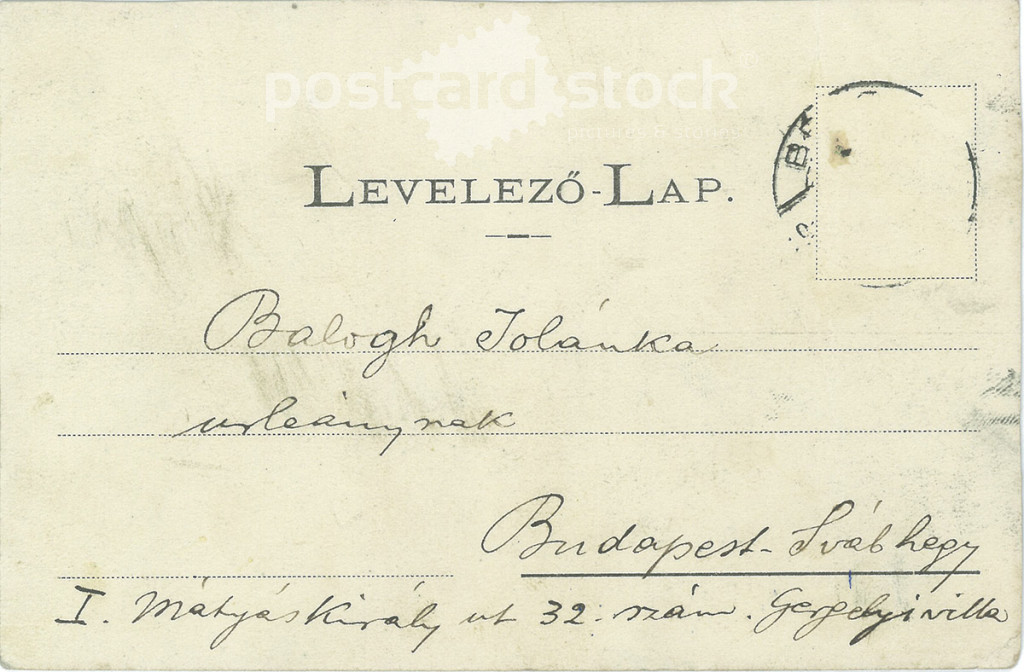 postcard stock
pictures & stories
LEVELEZŐ-LAP.
Balogh Jolánka
urleánynak
Budapest-Svábhegy
I. Mátyáskirály ut 32. szám. Gergelyi villa